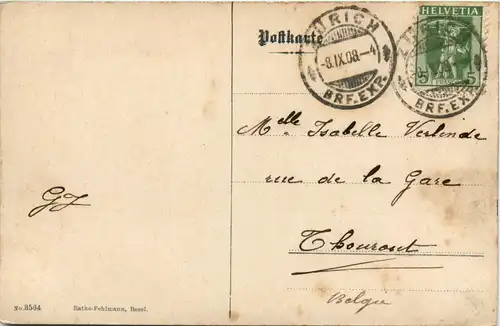 Postkarte
ZÜRICH
-8.IX.08.-4
BRF.EXP.
HELVETIA
5 5
BRF.EXP.
Melle Isabelle Verlinde
rue de la Gare
Thourout
Belgie
GJ
No. 3564 Rathe-Fehlmann, Basel.